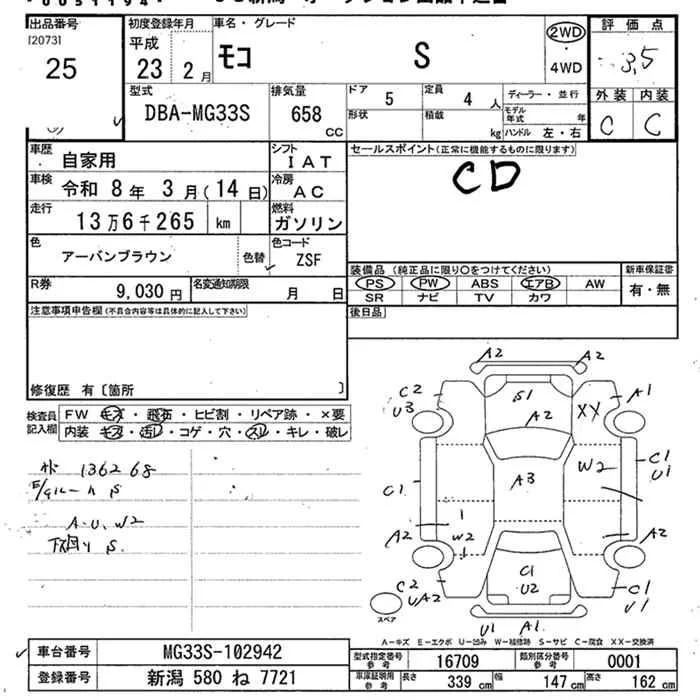 出品番号
[2073]
25
初度登録年月
平成
23 2月
車名・グレード
モコ S
2WD
・
4WD
評価点
3.5
外装 内装
C C
型式
DBA-MG33S
排気量
658
CC
ドア
5
定員
4人
形状
積載
kg
ディーラー・並行
モデル年式 年
ハンドル 左・右
車歴 自家用
シフト
IAT
車検 令和 8年 3月(14日)
冷房
AC
走行 13万6千265 km
燃料
ガソリン
色
アーバンブラウン
色替
色コード
ZSF
R券
9,030円
名変通知期限
月 日
セールスポイント(正常に機能するものに限ります)
CD
装備品(純正品に限り〇をつけてください)
新車保証書
PS PW ABS エアB AW
有・無
SR ナビ TV カワ
後日品
注意事項申告欄(不具合内容等は具体的に記入して下さい)
修復歴 有〔箇所 〕
検査員
記入欄
FW キズ・飛石・ヒビ割・リペア跡・×要
内装 キズ・汚レ・コゲ・穴・スレ・キレ・破レ
136268
S
A・U、W2
下回り S
A2 A2
C2 U3
S1
A2
XX
A1
C1
A3
W2
C1 U1
A2
W2
A2
C1 U2
C2 UA2
C1 U1
U1 A1
スペア
A-キズ E-エクボ U-凹み W-補修跡 S-サビ C-腐食 XX-交換済
車台番号 MG33S-102942
登録番号 新潟 580 ね 7721
型式指定番号
参考
16709
類別区分番号
参考
0001
車庫証明用
参考
長さ 339cm 幅 147cm 高さ 162cm